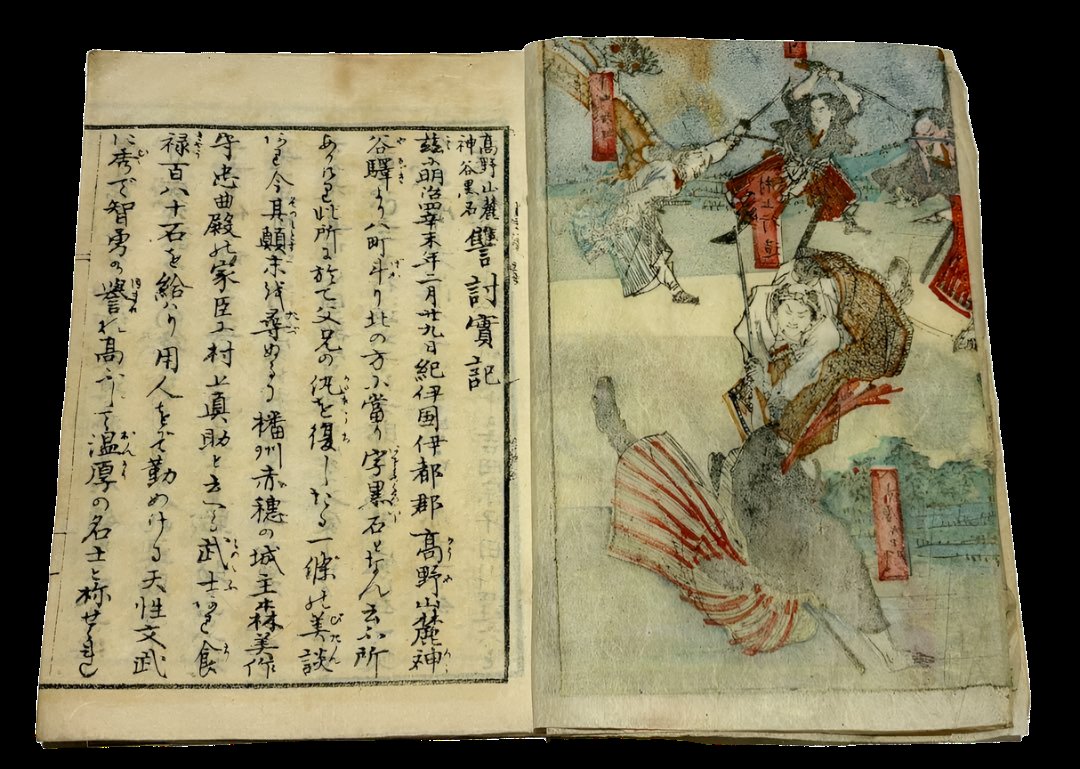 高野山麓
神谷黒石
讐討實記
茲に明治四辛未年二月廿九日紀伊国伊都郡高野山麓神
谷驛より八町斗り北の方に當り字黒石となん云ふ所
あり此所に於て父兄の仇を復したる一條の美談
あり今其顛末を尋ぬるに播州赤穂の城主森美作
守忠典殿の家臣に村上真助と云へる武士あり食
禄百八十石を給ハり用人をぞ勤めける天性文武
に秀で智勇の誉れ高ふして温厚の名士と称せられし
村上